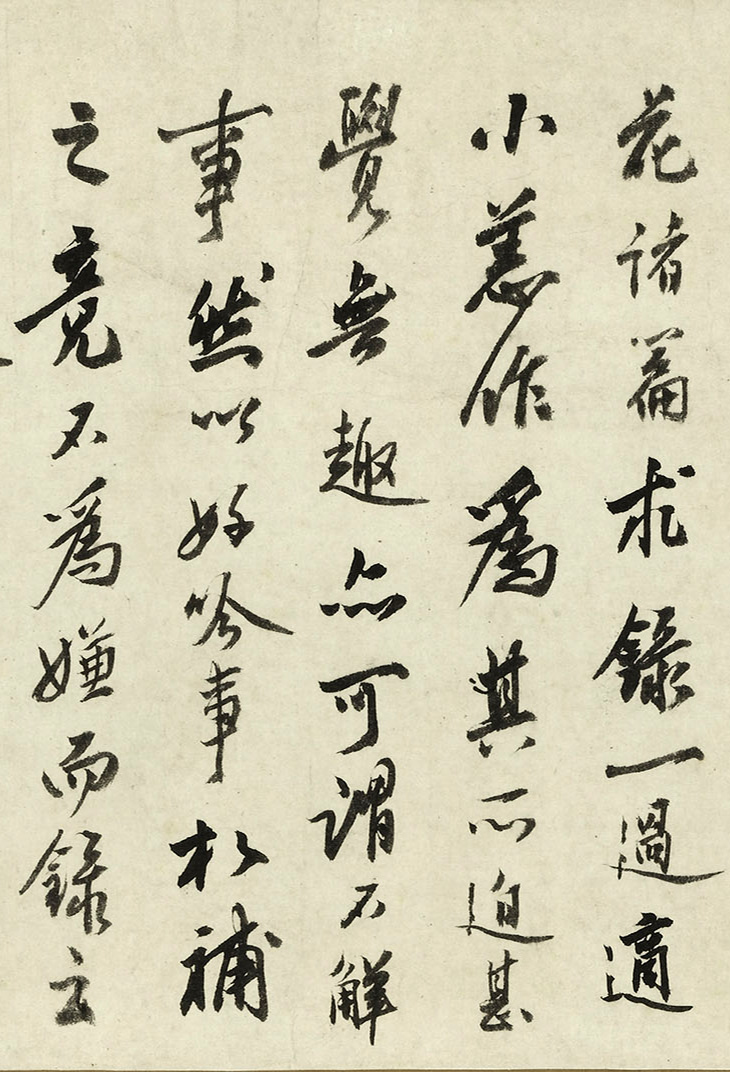 花諸篇求錄一過適
小恙作爲其所迫甚
覺無趣亦可謂不解
事然以好吟事於補
之竟不爲嫌而錄云